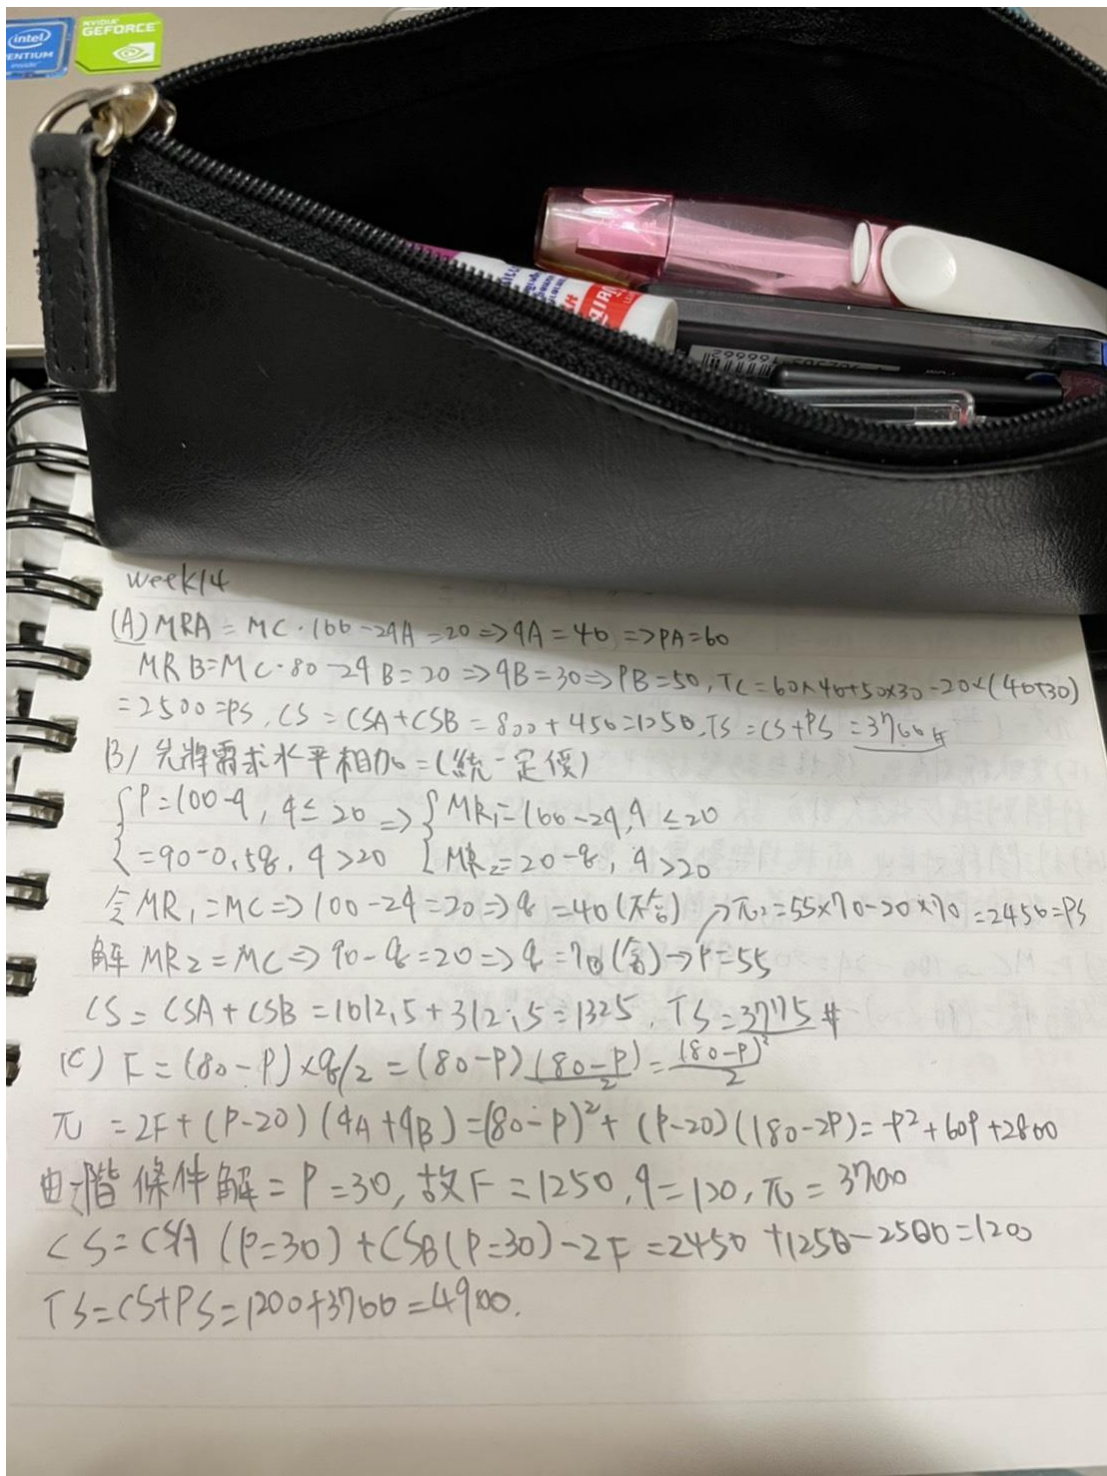 intel
PENTIUM
inside
NVIDIA
GEFORCE
week14
(A) MRA = MC · 100 - 2qA = 20 => qA = 40, => PA = 60
MRB = MC · 80 - 2qB = 20 => qB = 30 => PB = 50, TC = 60×40+50×30-20×(40+30)
= 2500 = PS, CS = CSA + CSB = 800 + 450 = 1250, TS = CS + PS = 3700 #
(B) 先將需求水平相加 = (統一定價)
{ P = 100-q, q ≤ 20 => { MR1 = 100-2q, q ≤ 20
{ = 90-0.5q, q > 20 { MR2 = 20-q, q > 20
令 MR1 = MC => 100-2q = 20 => q = 40 (不合) → π2 = 55×70-20×70 = 2450 = PS
解 MR2 = MC => 90-q = 20 => q = 70 (合) → P = 55
CS = CSA + CSB = 1012.5 + 312.5 = 1325, TS = 3775 #
(C) F = (80-P)×q/2 = (80-P)(80-P)/2 = (80-P)²/2
π = 2F + (P-20)(qA+qB) = (80-P)² + (P-20)(180-2P) = -P²+60P+2800
由一階條件解 = P = 30, 故F = 1250, q = 120, π = 3700
CS = CSA (P=30) + CSB (P=30) - 2F = 2450 + 1250 - 2500 = 1200
TS = CS + PS = 1200 + 3700 = 4900.